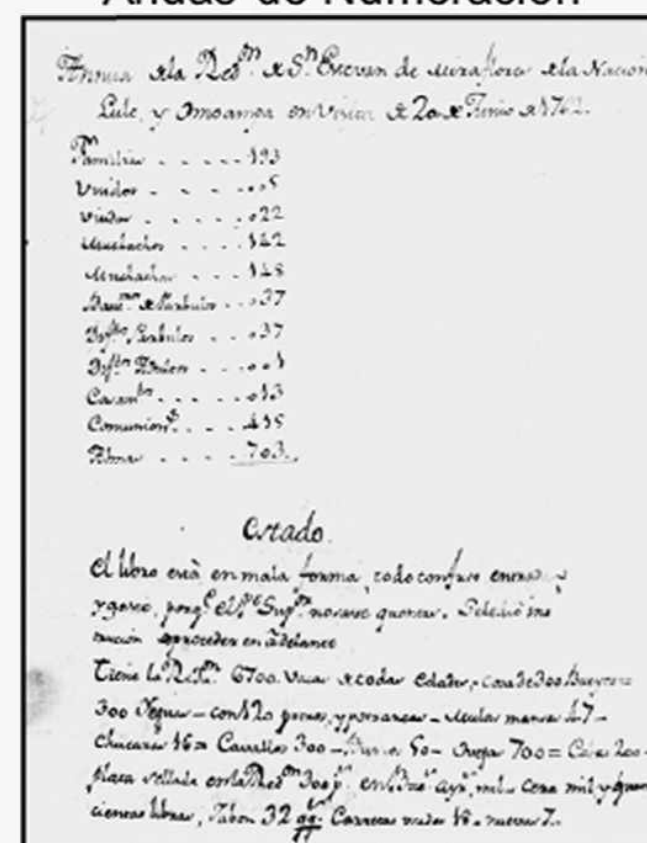 Anuas de Numeración
Annua dela Redⁿ de Sⁿ Estevan de Miraflores dela Nacion
Lule, y Omoampa en Visita de 20 de Junio de 1762.
Familias - - - - - 193
Viudos - - - - 005
Viudas - - - - 022
Muchachos - - - - 142
Muchachas - - - 128
Bauᵐᵒˢ de Parbulos - - 037
Difᵗᵒˢ Parbulos - - 037
Difᵗᵒˢ Adultos - - - 001
Casamᵗᵒˢ - - - - 013
Comunionˢ - - - 415
Almas - - - - 703.
Estado.
El libro está en mala forma, todo confuso entrada, y
y gasto, porqᵉ el Pᵉ Supᵒʳ no
proceder en adelante
Tiene la Redⁿ 6700 Vacas de todas Edades, cosa de 300 Bueyes
300 Yeguas - con 120 - Mulas mansas 47 -
Chucaras 16 = Cavallos 300 - Burros 50 - Ovejas 700 = Cabras 200 -
plata sellada en la Redⁿ 30 pˢ en Bueˢ Ayrˢ mil - Cera mil y
cientas libras, Jabon 32 qqˢ Carretas viejas 18 - nuevas 7 -